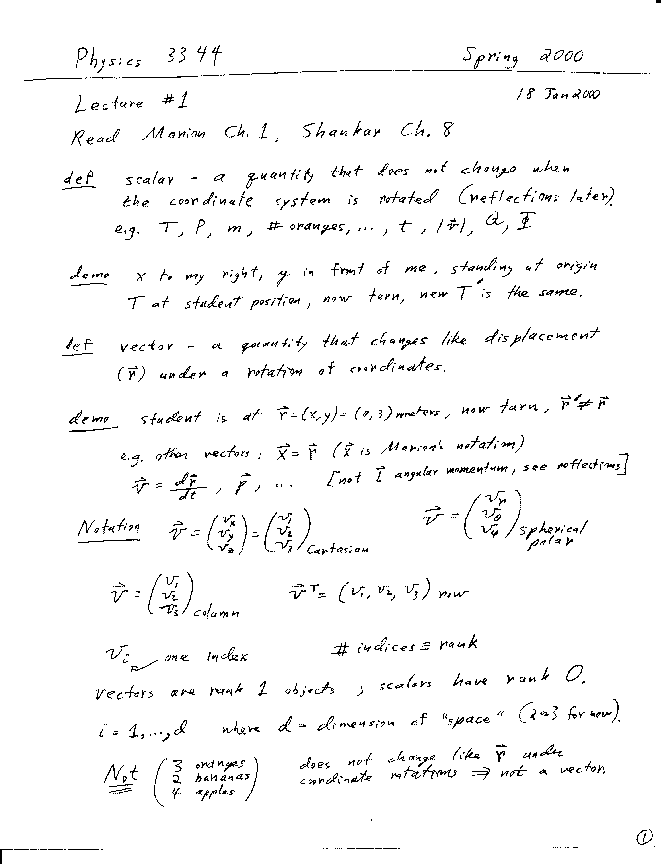 Physics 3344 Spring 2000
Lecture #1 18 Jan 2000
Read Marion Ch. 1, Shankar Ch. 8
def scalar - a quantity that does not change when
the coordinate system is rotated (reflections later).
e.g. T, P, m, # oranges, ..., t, |v⃗|, Q, Φ
demo x to my right, y in front of me, standing at origin
T at student position, now turn, new T' is the same.
def vector - a quantity that changes like displacement
(r⃗) under a rotation of coordinates.
demo student is at r⃗=(x,y)=(0,3) meters, now turn, r⃗' ≠ r⃗
e.g. other vectors: x⃗ = r⃗ (x⃗ is Marion's notation)
v⃗ = dr⃗/dt, p⃗, ... [not L⃗ angular momentum, see reflections]
Notation v⃗ = (vx vy vz) = (v1 v2 v3) Cartesian v⃗ = (vr vθ vφ) spherical polar
v⃗ = (v1 v2 v3) column v⃗ᵀ = (v1, v2, v3) row
vi one index # indices ≡ rank
vectors are rank 1 objects; scalars have rank 0.
i = 1,...,d where d = dimension of "space" (2 or 3 for now).
Not (3 oranges 2 bananas 4 apples) does not change like r⃗ under
coordinate rotations ⇒ not a vector.
1